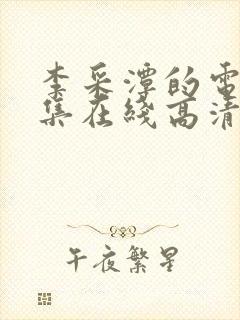 李采潭的電
集在綫高清
午夜繁星